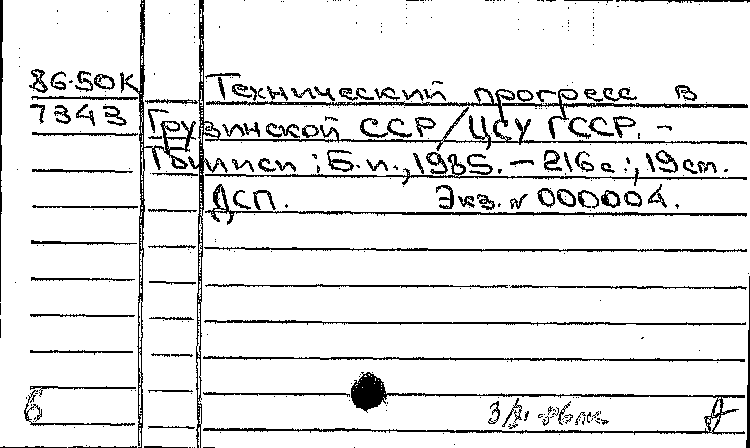 86-50К Технический прогресс в
7343 Грузинской ССР / ЦСУ ГССР. –
Тбилиси : Б.и., 1985. – 216 с.; 19 см.
ДСП. Экз. № 000004.
б